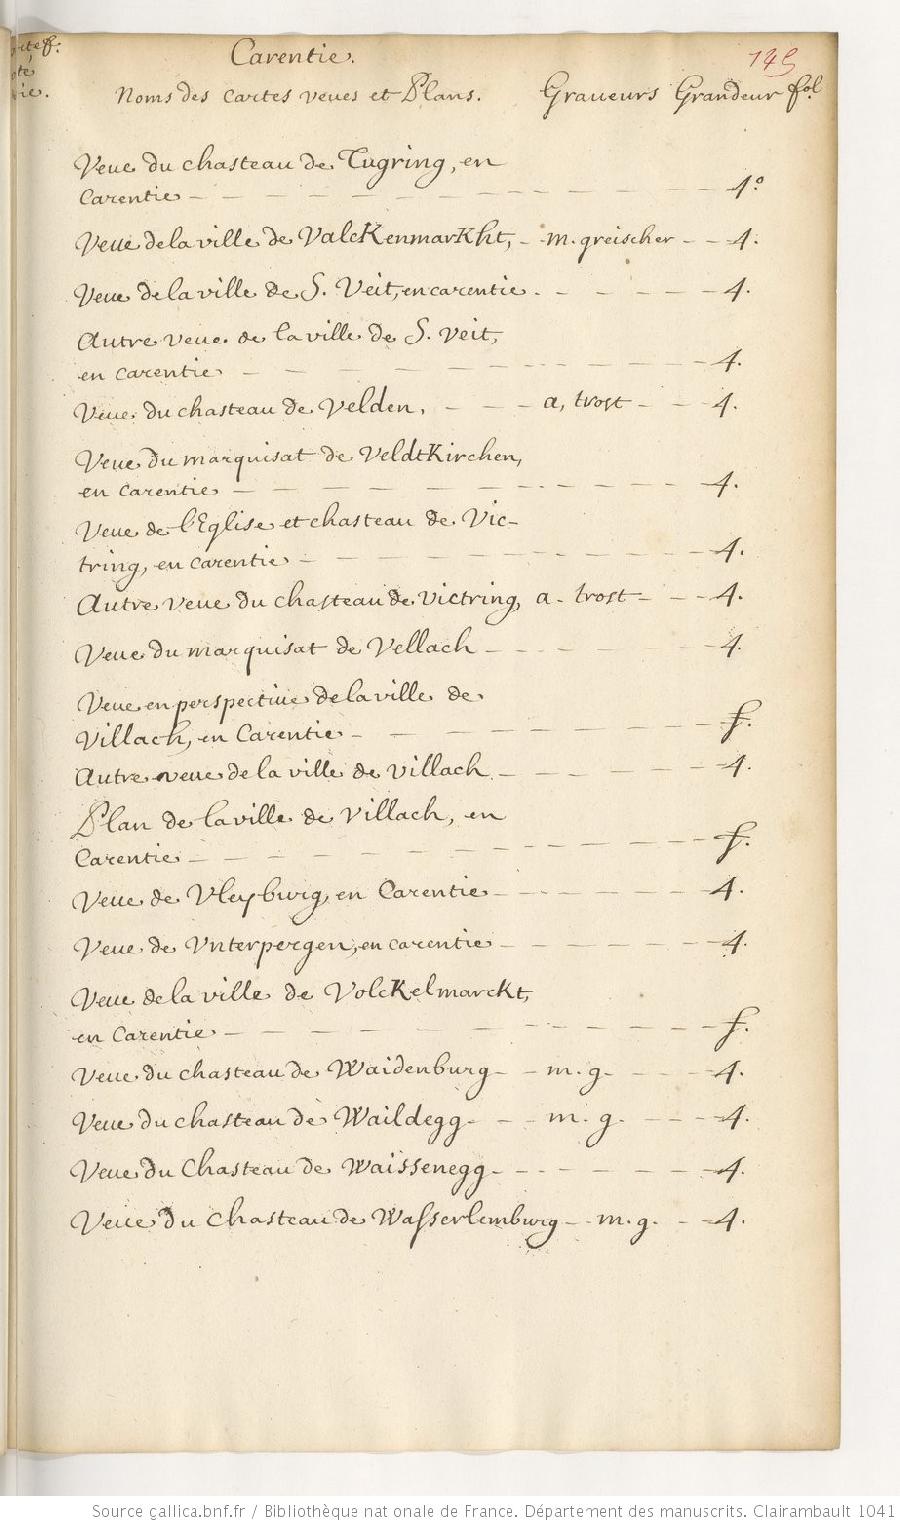 Carentie.
145
Noms des cartes veues et Plans. Graueurs Grandeur fol.
Veue du chasteau de Tugring, en
Carentie - - - - - - - - - - - 4°
Veue de la ville de ValcKenmarKht, - m. greischer - - 4.
Veue de la ville de S. Veit, en carentie. - - - - - 4.
Autre veue. de la ville de S. Veit,
en carentie - - - - - - - - - - - 4.
Veue du chasteau de Velden, - - - a, trost - - - 4.
Veue du marquisat de VeldtKirchen,
en carentie - - - - - - - - - - - 4.
Veue de l'Eglise et chasteau de Vic-
tring, en carentie - - - - - - - - - 4.
Autre veue du chasteau de victring, a - trost - - - 4.
Veue du marquisat de Vellach - - - - - - - 4.
Veue en perspective de la ville de
Villach, en Carentie - - - - - - - - - f.
Autre veue de la ville de villach - - - - - - 4.
Plan de la ville de Villach, en
Carentie - - - - - - - - - - - f.
Veue de Vleyburg, en Carentie - - - - - - - 4.
Veue de Vnterpergen, en carentie - - - - - - 4.
Veue de la ville de VolcKelmarckt,
en Carentie - - - - - - - - - - - f.
Veue du chasteau de Waidenburg - - m. g. - - - 4.
Veue du chasteau de Waildegg - - - m. g. - - - 4.
Veue du Chasteau de Waissenegg - - - - - - 4.
Veue du chasteau de Wasserlemburg - - m. g. - - 4.
Source gallica.bnf.fr / Bibliothèque nationale de France. Département des manuscrits. Clairambault 1041